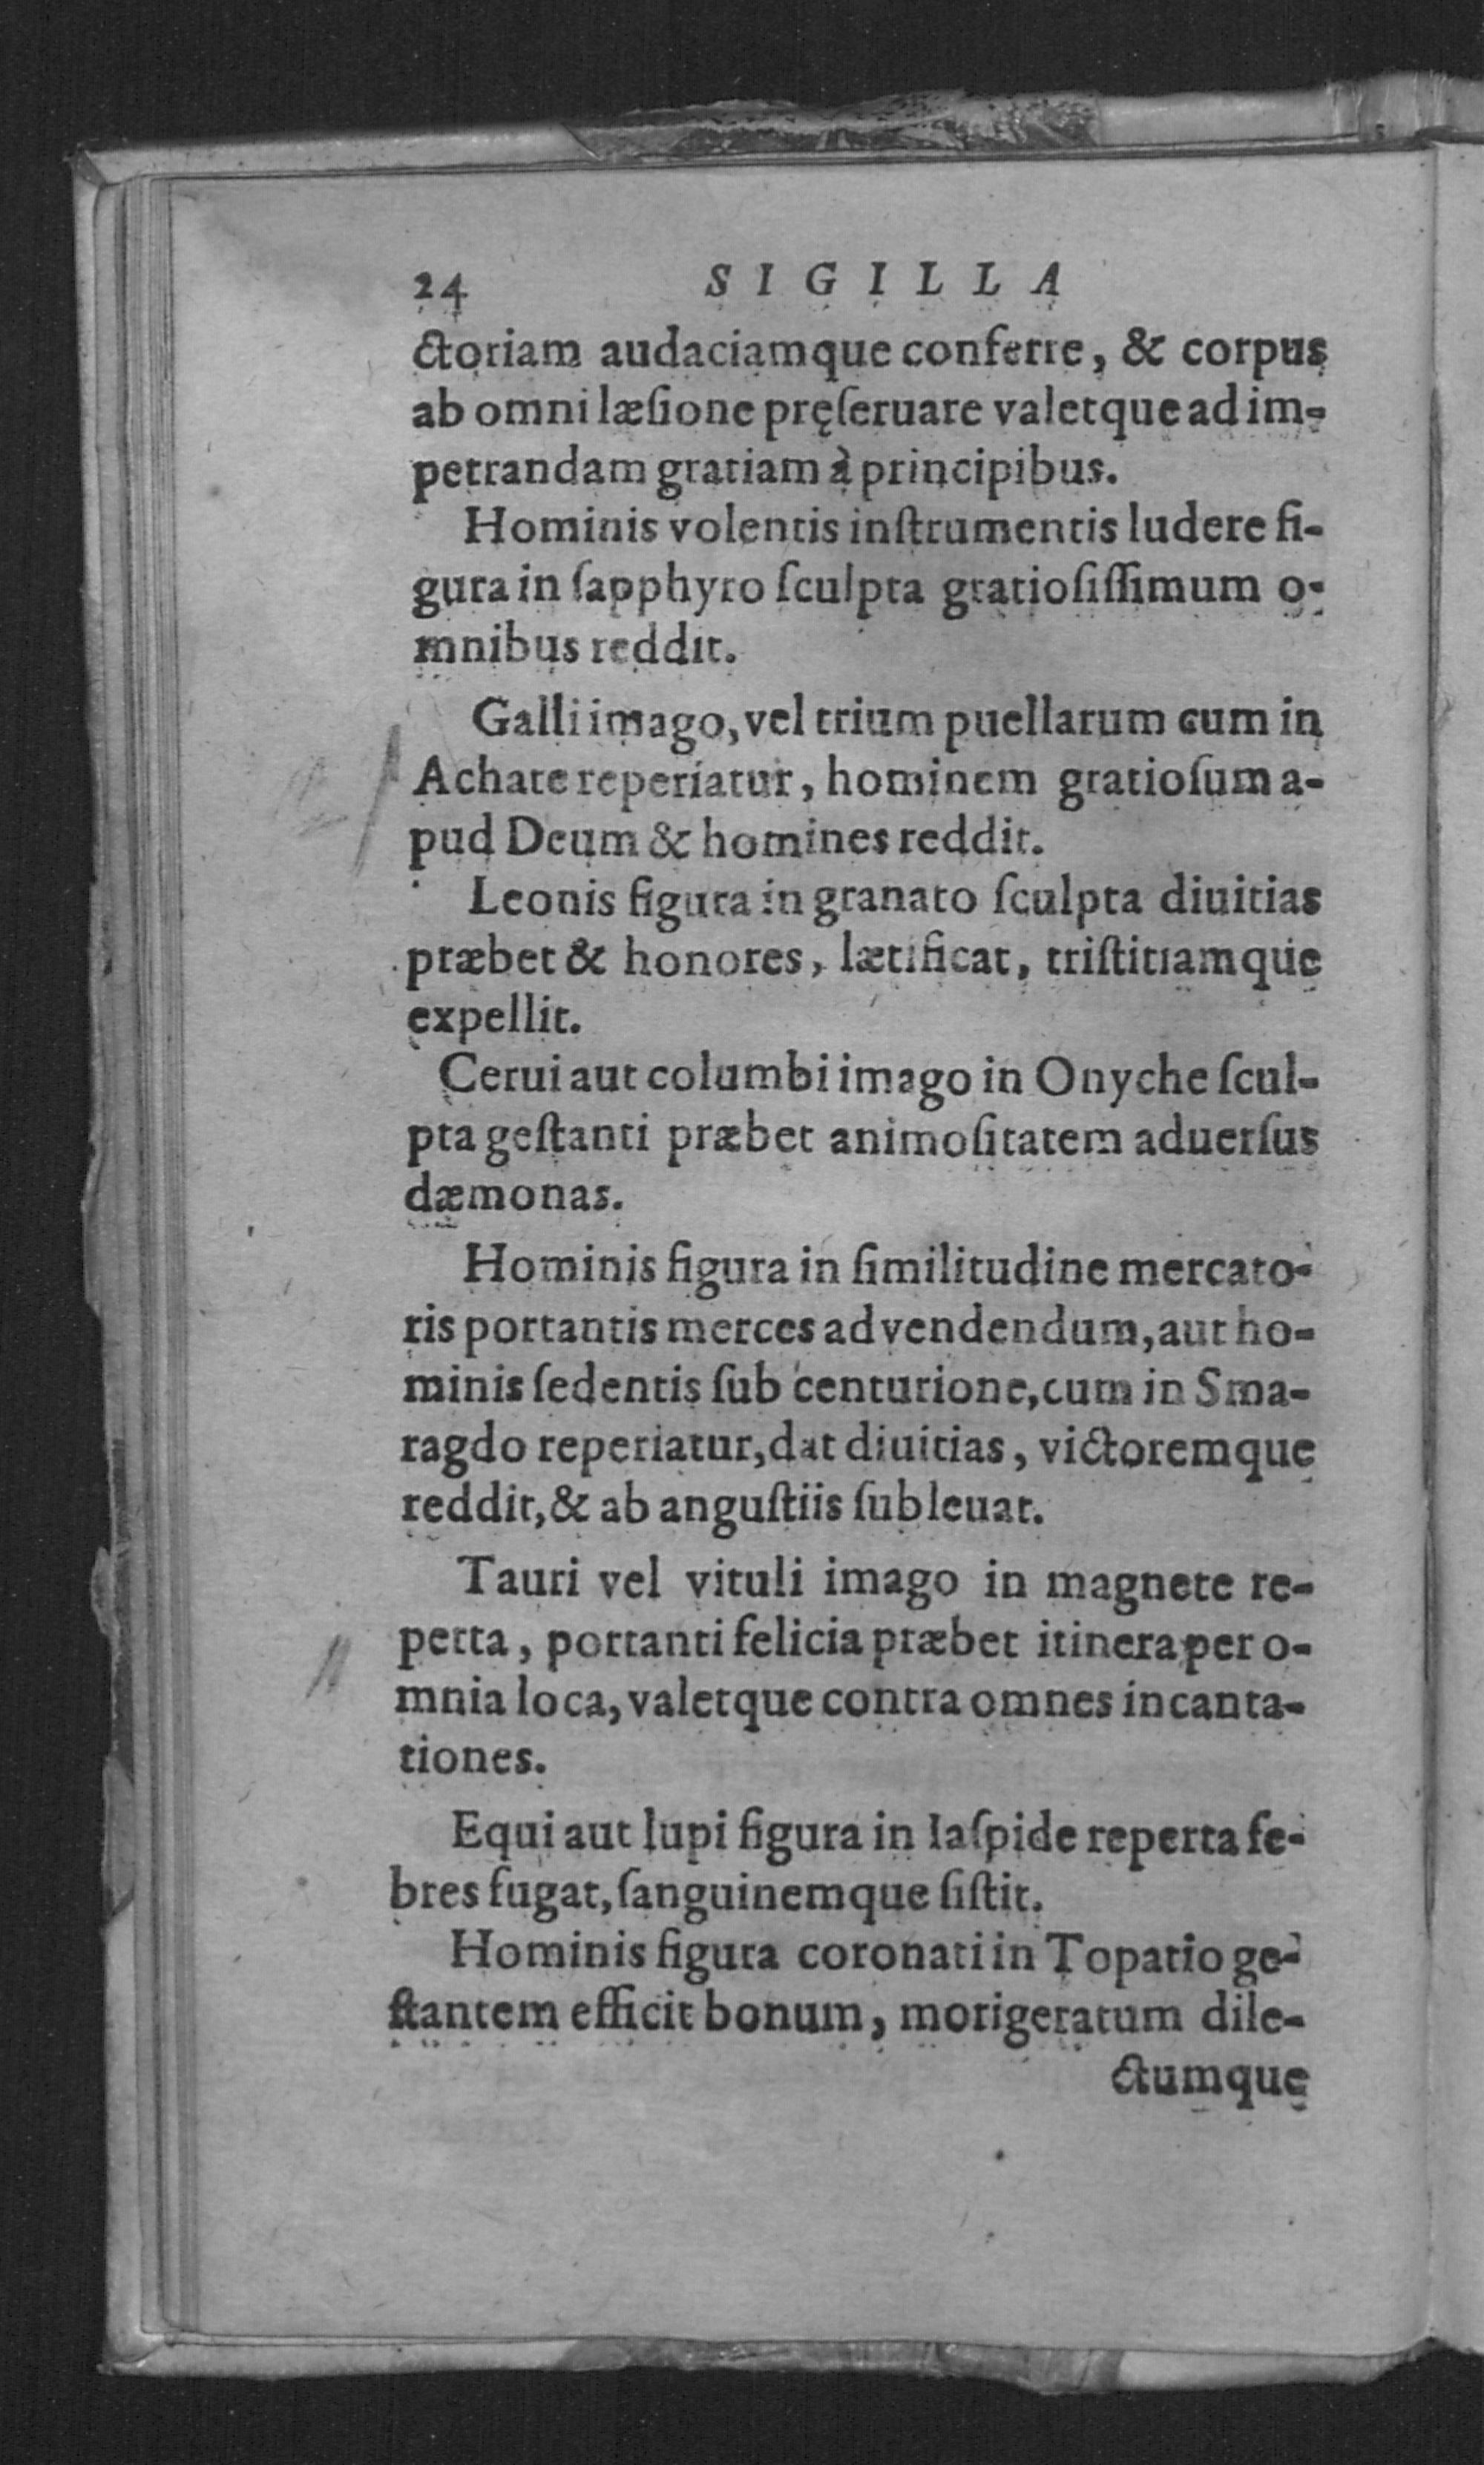 24 SIGILLA
ctoriam audaciamque conferre, & corpus
ab omni læſione pręſeruare valetque ad im-
petrandam gratiam à principibus.
Hominis volentis inſtrumentis ludere fi-
gura in ſapphyro ſculpta gratioſiſſimum o-
mnibus reddit.
Galli imago, vel trium puellarum cum in
Achate reperiatur, hominem gratioſum a-
pud Deum & homines reddit.
Leonis figura in granato ſculpta diuitias
præbet & honores, lætificat, triſtitiamque
expellit.
Cerui aut columbi imago in Onyche ſcul-
pta geſtanti præbet animoſitatem aduerſus
dæmonas.
Hominis figura in ſimilitudine mercato-
ris portantis merces ad vendendum, aut ho-
minis ſedentis ſub centurione, cum in Sma-
ragdo reperiatur, dat diuitias, victoremque
reddit, & ab anguſtiis ſubleuat.
Tauri vel vituli imago in magnete re-
perta, portanti felicia præbet itinera per o-
mnia loca, valetque contra omnes incanta-
tiones.
Equi aut lupi figura in Iaſpide reperta fe-
bres fugat, ſanguinemque ſiſtit.
Hominis figura coronati in Topatio ge-
ſtantem efficit bonum, morigeratum dile-
ctumque